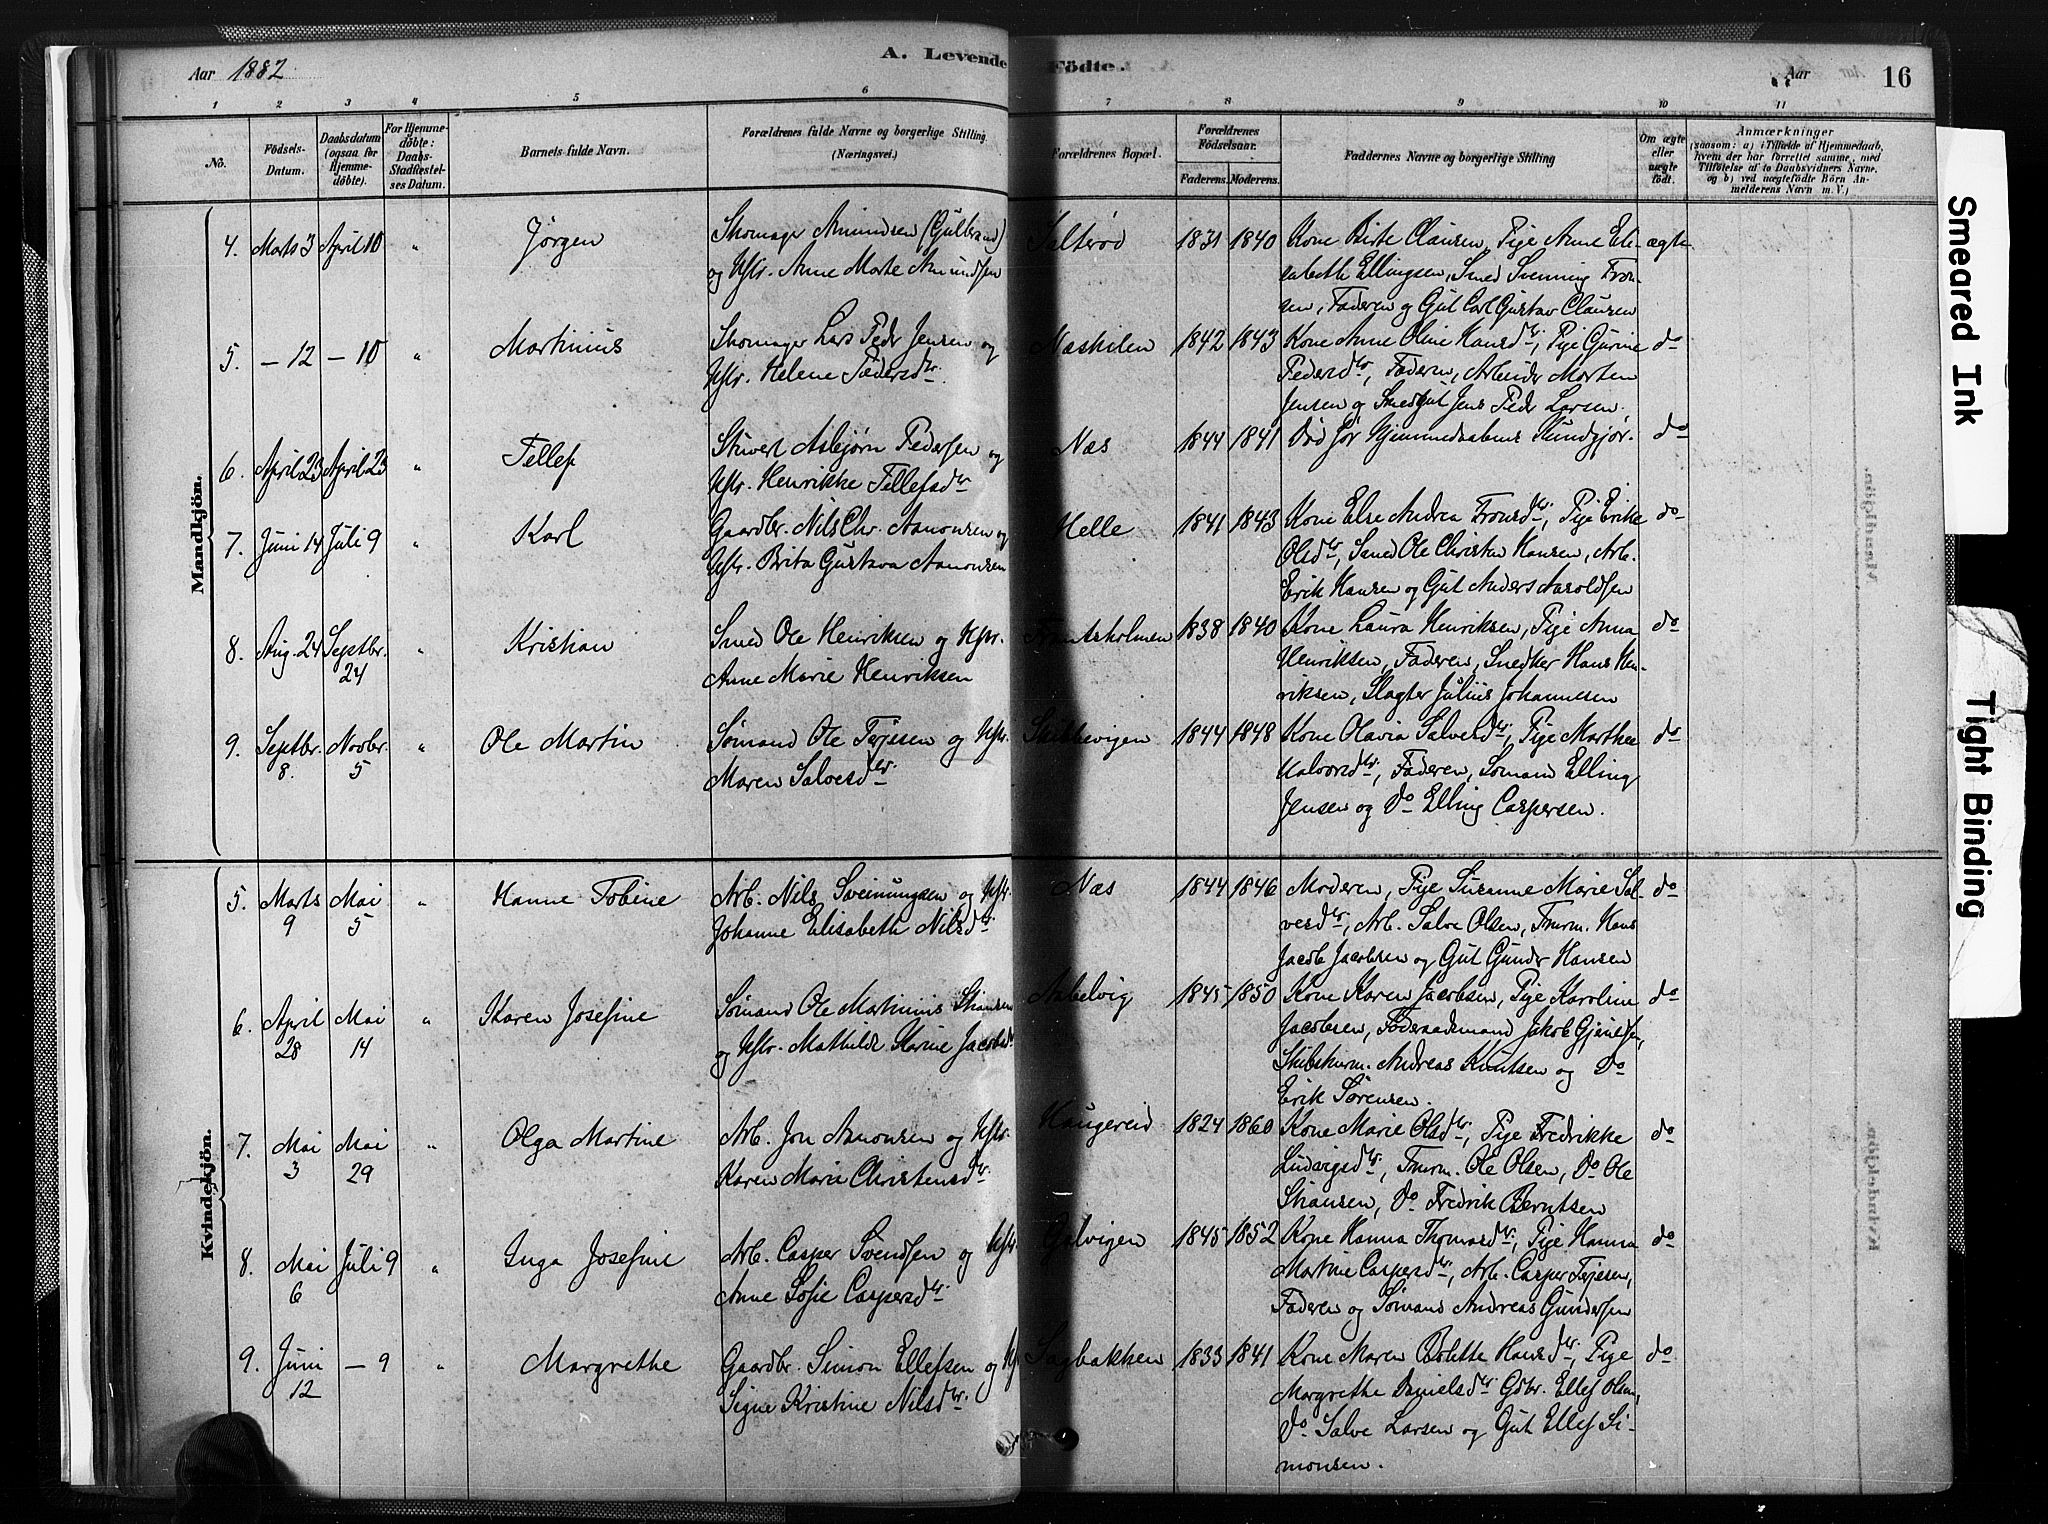 Aar 1882
A. Levende Födte.
Aar
16
1 2 3 4 5 6 7 8 9 10 11
No.
Födsels-Datum.
Daabsdatum (ogsaa for Hjemme-döbte).
For Hjemme-döbte: Daabs-Stadfæstel-ses Datum.
Barnets fulde Navn.
Forældrenes fulde Navne og borgerlige Stilling. (Næringsvei.)
Forældrenes Bopæl.
Forældrenes Födselsaar.
Faderens. Moderens.
Faddernes Navne og borgerlige Stilling
Om ægte eller uægte födt.
Anmærkninger
(saasom: a) i Tilfælde af Hjemmedaab, hvem der har forrettet samme, med Tilföielse af to Daabsvidners Navne, og b) ved uægtefödte Börn An-melderens Navn m. V.)
Mandkjön.
4. Marts 3 April 10 " Jörgen
Skomager Amundsen (Gulbrand)
og Hstr. Anne Marte Amundsen
Salterød 1831 1840
Kone Birte Clausen, Pige Anne Eli-
sabeth Ellingsen, Smed Svenning Fron-
sen, Faderen og Gut Carl Gustav Clausen
ægte
5. - 12 - 10 " Martinius
Skomager Lars Pedr Jensen og
Hstr. Helene Pedersdtr.
Næskilen 1842 1843
Kone Anne Oline Hansdtr, Pige Gurine
Pedersdtr, Faderen, Arbeider Morten
Jensen og Smedgut Jens Pedr Larsen.
do
6. April 23 April 23 " Tellef
Stuvert Asbjørn Pedersen og
Hstr. Henrikke Tellefsdtr
Næs 1844 1841
Død før Hjemmedaabens Kundgjør.
do
7. Juni 14 Juli 9 " Karl
Gaardbr. Nils Chr. Aanonsen og
Hstr. Brita Gustava Aanonsen
Helle 1841 1843
Kone Else Andrea Fronsdtr, Pige Erikke
Olsdtr, Smed Ole Christen Hansen, Arb.
Erik Hansen og Gut Anders Aaroldsen
do
8. Aug. 24 Septbr. 24 " Kristian
Smed Ole Henriksen og Hstr.
Anne Marie Henriksen
Frantsholmen 1838 1840
Kone Laura Henriksen, Pige Anna
Henriksen, Faderen, Snedker Hans Hen-
riksen, Slagter Julius Johannesen
do
9. Septbr. 8. Novbr. 5 " Ole Martin
Sømand Ole Terjesen og Hstr.
Maren Salvesdtr.
Skibbevigen 1844 1848
Kone Olavia Salvesdtr, Pige Marthe
Halvorsdtr, Faderen, Sømand Elling
Jensen og do Elling Caspersen.
do
Kvindekjön.
5. Marts 9 Mai 5 " Hanne Tobine
Arb. Nils Sveinungsen og Hstr.
Johanne Elisabeth Nilsdtr
Næs 1844 1846
Moderen, Pige Susanne Marie Sal-
vesdtr, Arb. Salve Olsen, Tmrm. Hans
Jacob Jacobsen og Gut Gunder Hansen
do
6. April 28 Mai 14 " Karen Josefine
Sømand Ole Martinius Stiansen
og Hstr. Mathilde Karine Jacobsdtr
1845 1850
Kone Karen Jacobsen, Pige Karoline
Jacobsen, Føderaadsmand Jakob Gjeruldsen,
Skibstmrm. Andreas Knutsen og Do
Erik Sørensen.
do
7. Mai 3 Mai 29 " Olga Martine
Arb. Jon Aanonsen og Hstr.
Karen Marie Christensdtr
Haugereid 1824 1860
Kone Marie Olsdtr, Pige Fredrikke
Ludvigsdtr, Tmrm. Ole Olsen, Do Ole
Stiansen, Do Fredrik Berntsen
do
8. Mai 6 Juli 9 " Inga Josefine
Arb. Casper Svendsen og Hstr.
Anne Sofie Caspersdtr
1845 1852
Kone Hanna Thomasdtr, Pige Hanna
Martine Caspersdtr, Arb. Casper Terjesen,
Faderen og Sømand Andreas Gundersen
do
9. Juni 12 - 9 " Margrethe
Gaardbr. Simon Ellefsen og
Signe Kristine Nilsdtr.
Sagbakken 1833 1841
Kone Maren Bolette Hansdtr, Pige
Margrethe Danielsdtr Gdbr. Ellef Olsen,
Do Salve Larsen og Gut Ellef Si-
monsen.
do
Smeared Ink
Tight Binding